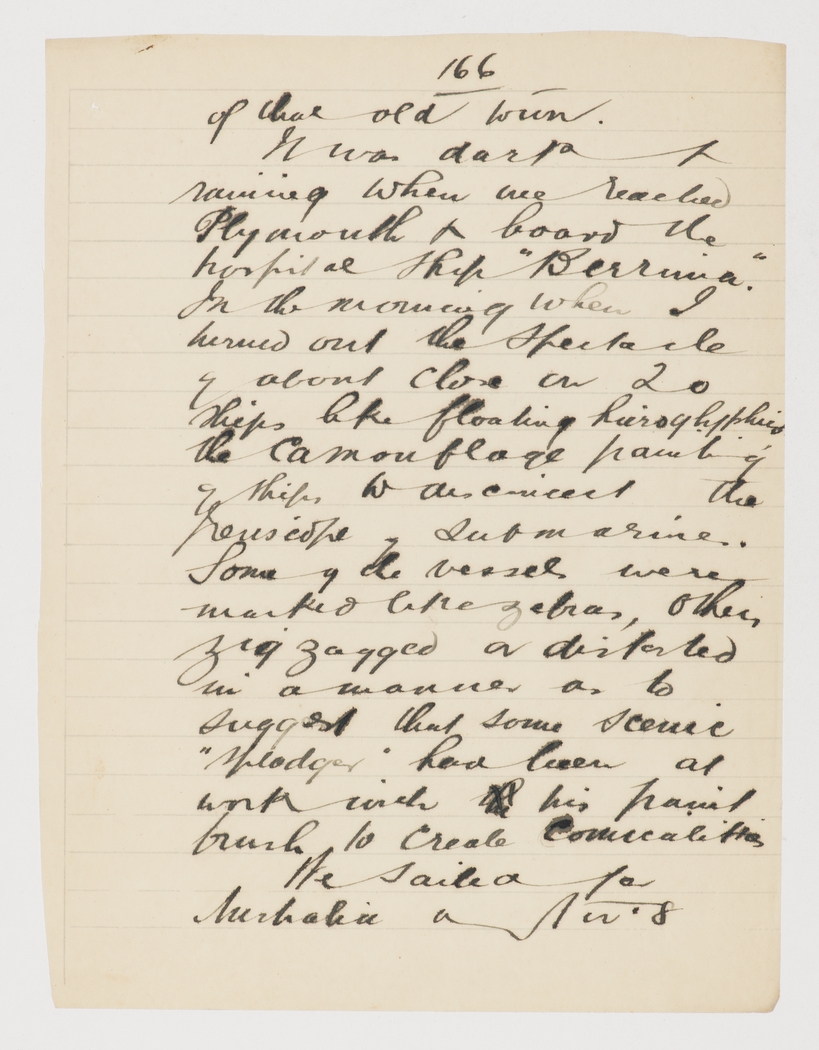 166
of that old town.
It was dark &
raining when we reached
Plymouth & board the
hospital ship "Berrima".
In the morning when I
turned out the spectacle
of about close on 20
ships like floating hieroglyphics
the camouflage painting
of ships to disconcert the
periscope of submarines.
Some of the vessels were
marked like zebras, others
zig zagged or distorted
in a manner as to
suggest that some scenic
"splodger" had been at
work with his paint
brush to create comicalities
We sailed for
Australia on Nov. 8